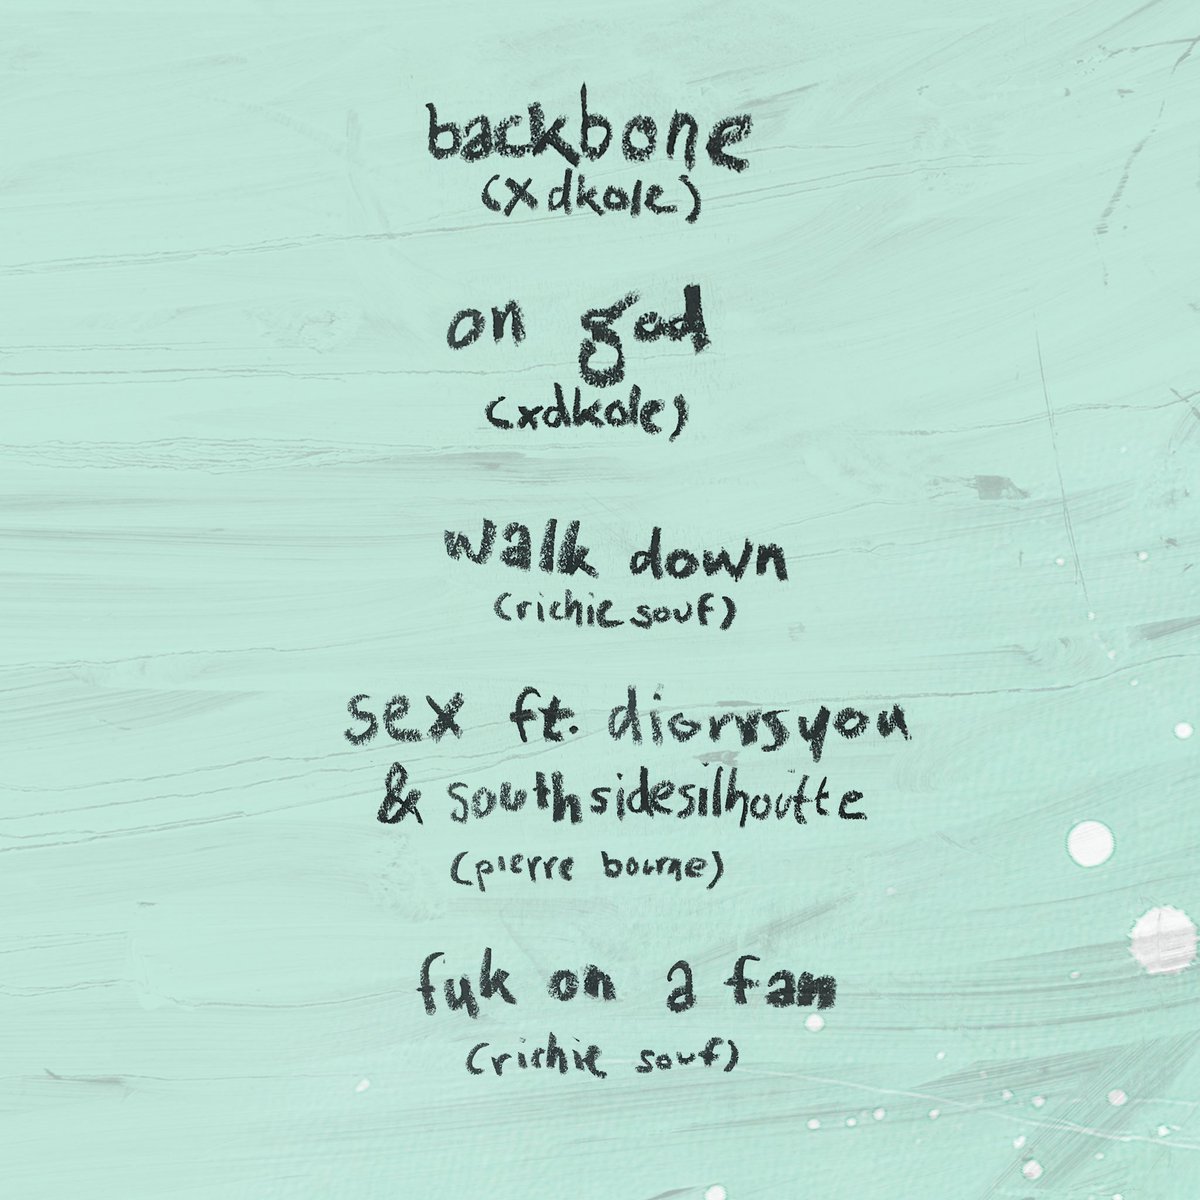 backbone
(xdkole)
on god
(xdkole)
walk down
(richie souf)
sex ft. diorvsyou
& southsidesilhoutte
(pierre bourne)
fuk on a fan
(richie souf)